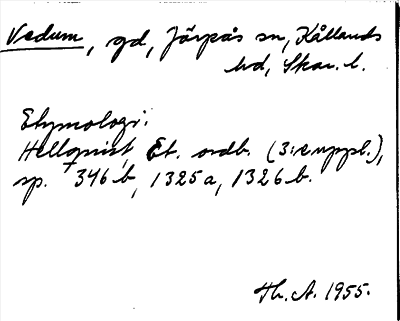 Vedum, gd, Järpås sn, Kållands
hd, Skar. l.
Etymologi:
Hellquist, Et. ordb. (3:e uppl.),
sp. 346 b, 1325 a, 1326 b.
Th. A. 1955.